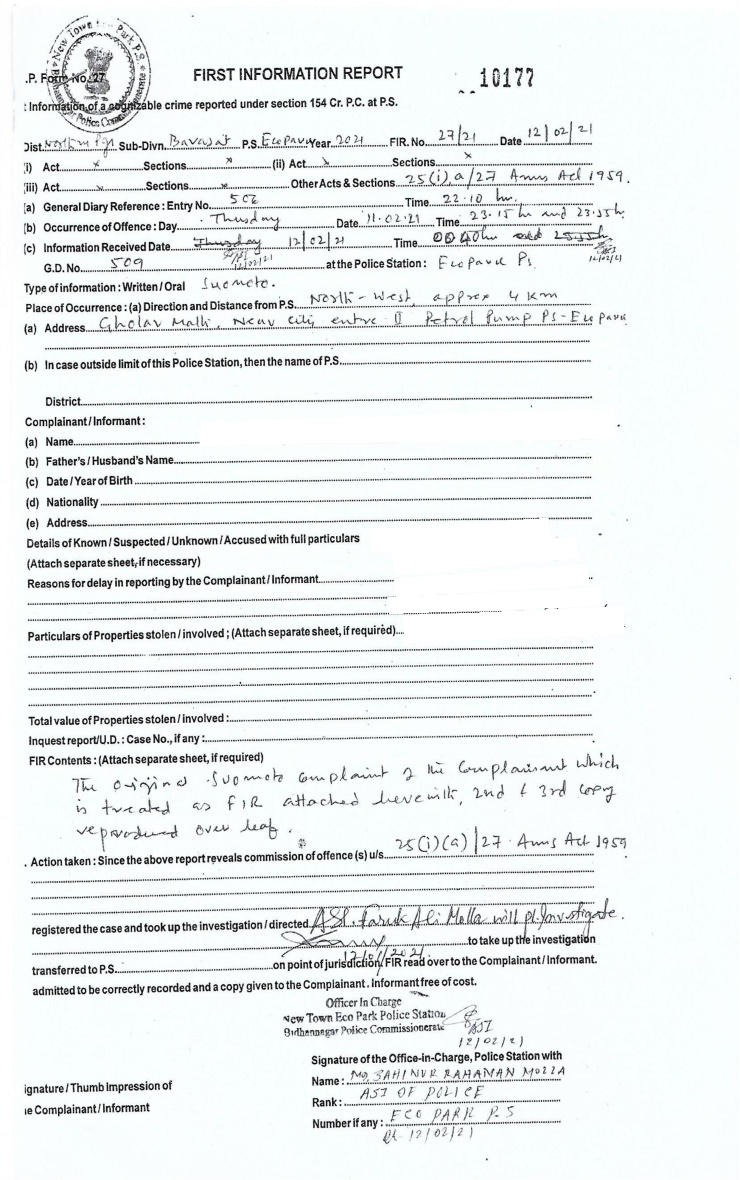 New Town Eco Park P.S.
Bidhannagar Police Commissionerate
.P. Form No. 27
FIRST INFORMATION REPORT
10177
: Information of a cognizable crime reported under section 154 Cr. P.C. at P.S.
Dist. North 24 Pgs Sub-Divn. Barasat P.S. Ecopark Year 2021 FIR. No. 27/21 Date 12/02/21
(i) Act x Sections x (ii) Act x Sections x
(iii) Act x Sections x Other Acts & Sections 25(i), a/27 Arms Act 1959.
(a) General Diary Reference: Entry No. 502 Time 22.10 hr.
(b) Occurrence of Offence: Day Thusday Date 11.02.21 Time 23.15 hr and 23.55 hr
(c) Information Received Date Thusday 12/02/21 Time
ASI 12/02/21
12/02/21
G.D. No. 509 at the Police Station: Ecopark Ps.
Type of information: Written / Oral Suomoto.
Place of Occurrence: (a) Direction and Distance from P.S. North-West, approx 4 km
(a) Address Near City Petrol Pump PS-Ecopark
(b) In case outside limit of this Police Station, then the name of P.S.
District
Complainant / Informant:
(a) Name
(b) Father's / Husband's Name
(c) Date / Year of Birth
(d) Nationality
(e) Address
Details of Known / Suspected / Unknown / Accused with full particulars
(Attach separate sheet, if necessary)
Reasons for delay in reporting by the Complainant / Informant
Particulars of Properties stolen / involved ; (Attach separate sheet, if required)
Total value of Properties stolen / involved :
Inquest report/U.D. : Case No., if any :
FIR Contents : (Attach separate sheet, if required)
The original Suomoto complaint of the Complainant which
is treated as FIR attached herewith, 2nd & 3rd copy
reproduced over leaf.
. Action taken : Since the above report reveals commission of offence (s) u/s. 25(i)(a)/27 Arms Act 1959
registered the case and took up the investigation / directed ASI. Faruk Ali Molla will pl. Investigate.
to take up the investigation
12/02/2021
transferred to P.S. on point of jurisdiction/FIR read over to the Complainant / Informant.
admitted to be correctly recorded and a copy given to the Complainant . Informant free of cost.
Officer In Charge
New Town Eco Park Police Station
Bidhannagar Police Commissionerate
ASI
12/02/21
Signature of the Office-in-Charge, Police Station with
ignature / Thumb Impression of
Name : MD SAHINUR RAHAMAN MOLLA
Rank : ASI OF POLICE
e Complainant / Informant
Number if any : ECO PARK P.S
Dt- 12/02/21